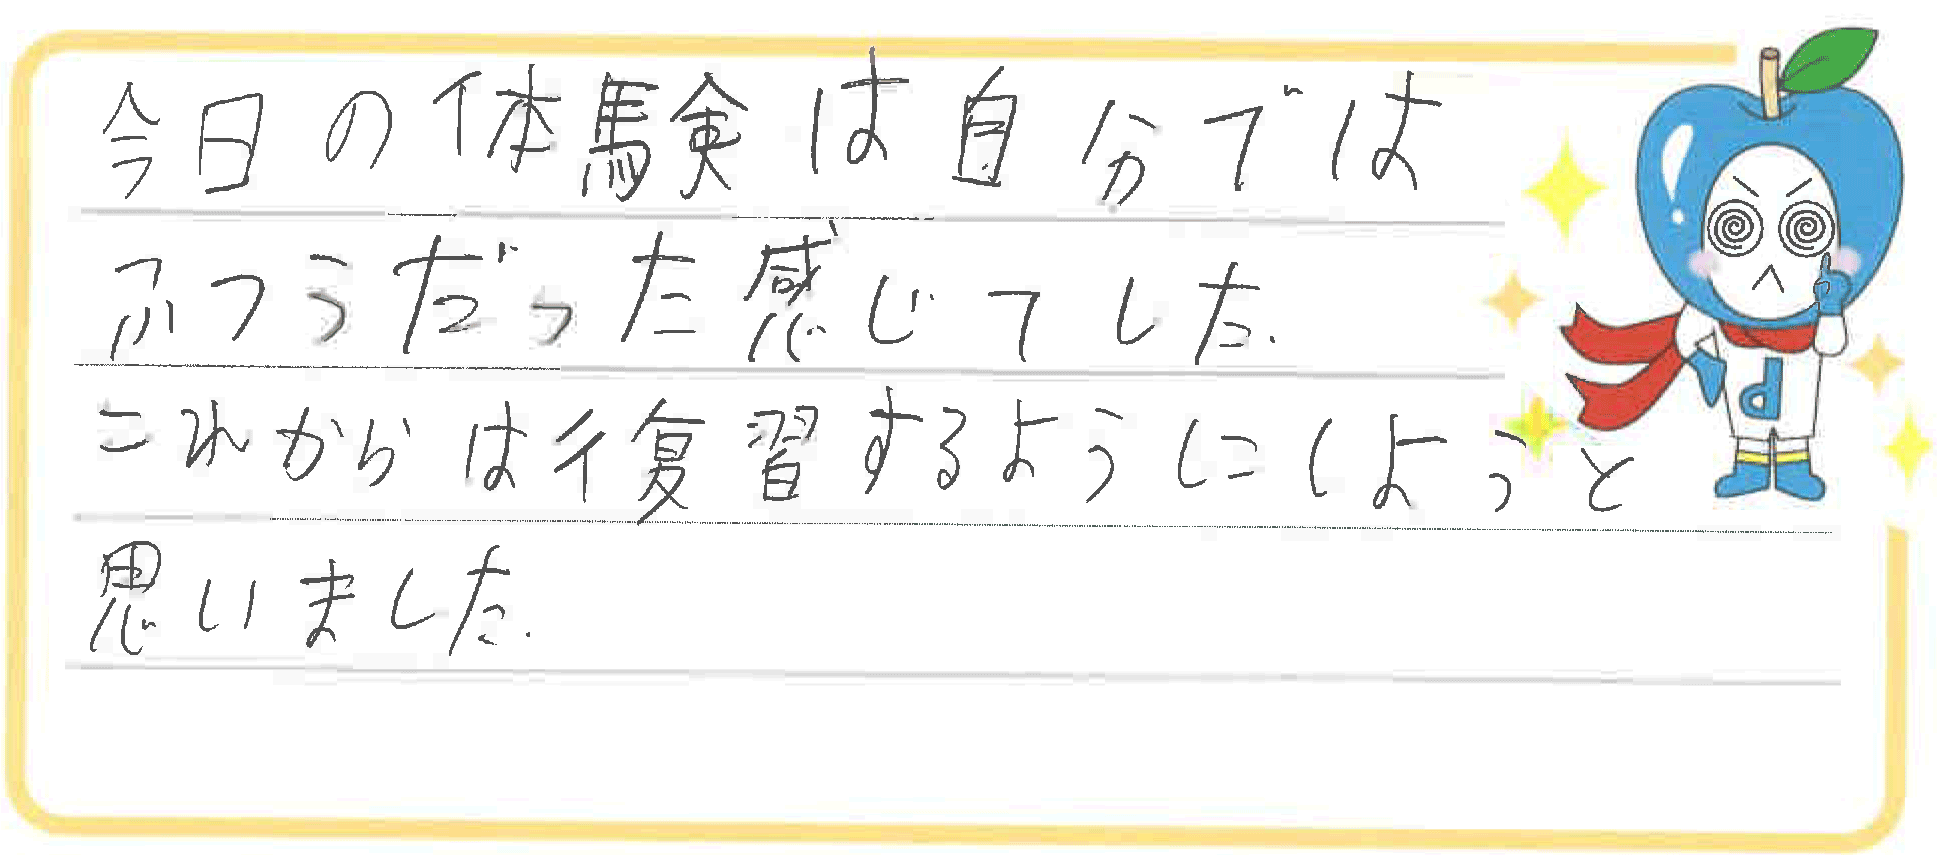 今日の体験は自分では
ふつうだった感じてした.
これからは復習するようにしようと
思いました.
d